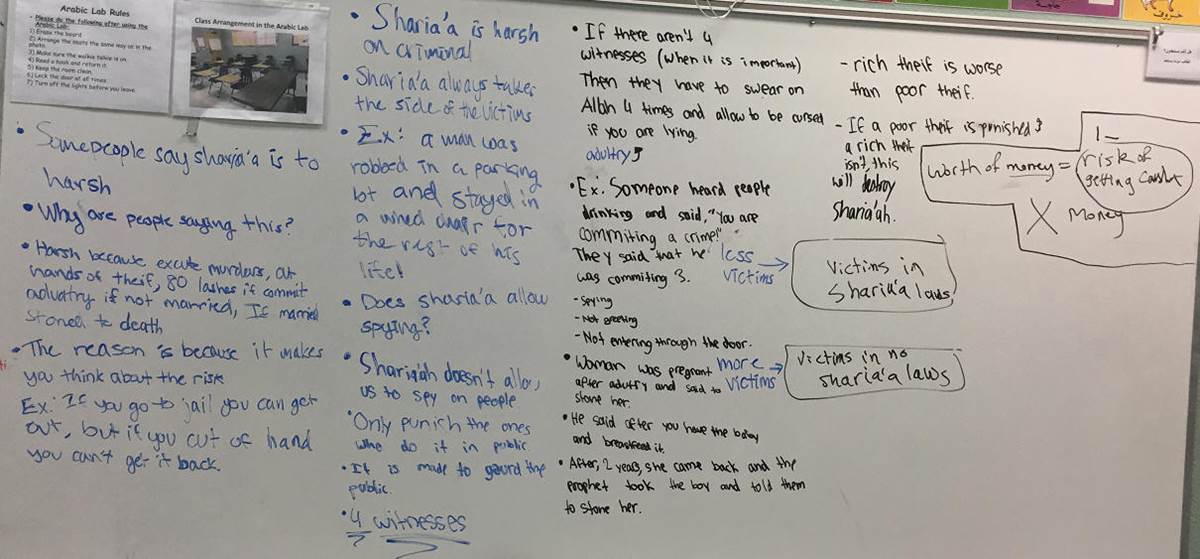 Arabic Lab Rules
- Please do the following after using the
Arabic Lab:
1) Erase the board
2) Arrange the seats the same way as in the
photo.
3) Make sure the walkie talkie is on
4) Read a book and return it.
5) Keep the room clean.
6) Lock the door at all times.
7) Turn off the lights before you leave.
Class Arrangement in the Arabic Lab
• Some people say sharia'a is to
harsh
• Why are people saying this?
• Harsh because excute murdars, cut
hands of theif, 80 lashes if commit
aduatry if not married, If married
stoned to death
• The reason is because it makes
you think about the risk
Ex: If you go to jail you can get
out, but if you cut of hand
you can't get it back.
• Sharia'a is harsh
on criminal
• Sharia'a always takes
the side of the victims
• Ex: a man was
robbed in a parking
lot and stayed in
a wheel chair for
the rest of his
life!
• Does sharia'a allow
spying?
• Shariah doesn't allow
us to spy on people.
• Only punish the ones
who do it in public
• It is made to gaurd the
public.
• 4 witnesses
• If there aren't 4
witnesses (when it is important)
Then they have to swear on
Allah 4 times and allow to be cursed
if you are lying.
adultry
• Ex. Someone heard people
drinking and said, "You are
commiting a crime!"
They said that he
was commiting 3.
- Spying
- Not greeting
- Not entering through the door.
• Woman was pregnant
after adultry and said to
stone her.
• He said after you have the baby
and breastfeed it.
• After, 2 years, she came back and the
prophet took the boy and told them
to stone her.
less
victims
more
victims
- rich theif is worse
than poor theif.
- If a poor theif is punished &
a rich theif
isn't, this
will destroy
Sharia'ah.
victims in
Sharia'a laws
victims in no
sharia'a laws
1 -
worth of money = risk of
getting caught
X money